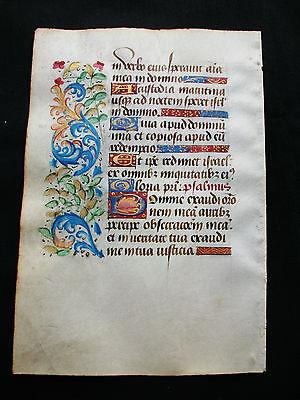 in verbo eius speravit aīa
mea in domino
A custodia matutina
usqȝ ad noctem speret isrl̄
in domino
Quia apud dominū
mīa et copiosa apud eū
redemptio
Et ipe redimet israel
ex omnibꝰ iniquitatibꝰ eiꝰ
Gloria pri. psalmus
Domine exaudi orōo
nem meā auribꝰ
percipe obsecrationem meā
et in veritate tua exaudi
me in tua iusticia